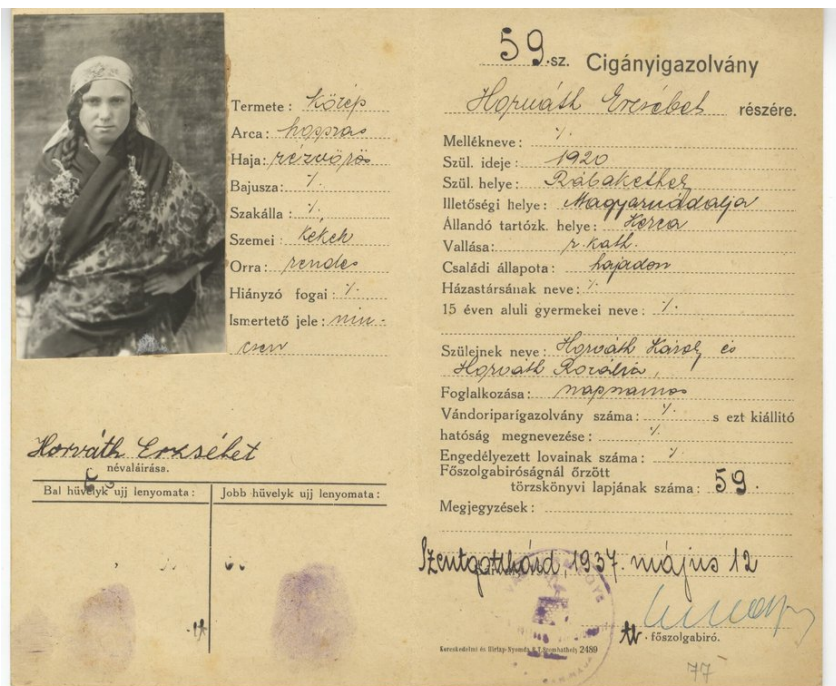 Termete: közép
Arca: hosszas
Haja: rézvörös
Bajusza: ·/.
Szakálla: ·/.
Szemei: kékek
Orra: rendes
Hiányzó fogai ·/.
Ismertető jele: nin-
csen
Horváth Erzsébet
névaláirása.
Bal hüvelyk ujj lenyomata: Jobb hüvelyk ujj lenyomata:
59.sz. Cigányigazolvány
Horváth Erzsébet részére.
Mellékneve: ·/.
Szül. ideje: 1920
Szül. helye: Rábakethely
Illetőségi helye: Magyarnádalja
Állandó tartózk. helye: Kerca
Vallása: r. kath.
Családi állapota: hajadon
Házastársának neve: ·/.
15 éven aluli gyermekei neve: ·/.
Szülejnek neve: Horváth Károly és
Horváth Rozália,
Foglalkozása: napszamos
Vándoriparigazolvány száma: ·/. s ezt kiállitó
hatóság megnevezése: ·/.
Engedélyezett lovainak száma: ·/.
Főszolgabiróságnál őrzött
törzskönyvi lapjának száma: 59.
Megjegyzések:
Szentgotthárd, 1937. május 12
főszolgabiró.
Kereskedelmi és Hirlap-Nyomda R.T. Szombathely 2489
77